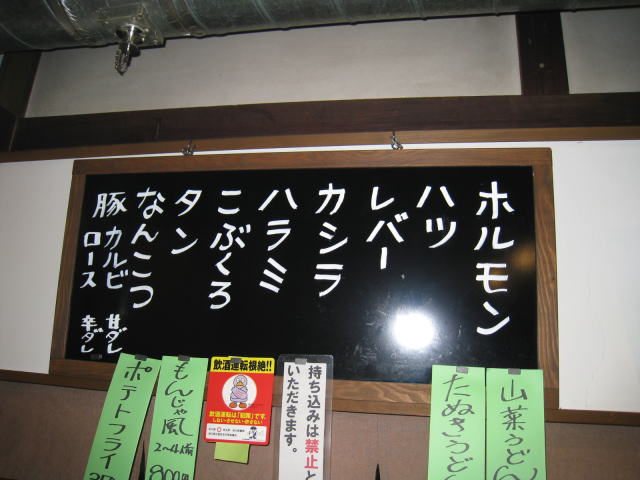 ホルモン
ハツ
レバー
カシラ
ハラミ
こぶくろ
タン
なんこつ
豚 カルビ 甘ダレ
ロース 辛ダレ
山菜うどん
たぬきうどん
持ち込みは禁止と
いただきます。
飲酒運転根絶!!
飲酒運転は「犯罪」です。
しない・させない・許さない
もんじゃ風
ポテトフライ